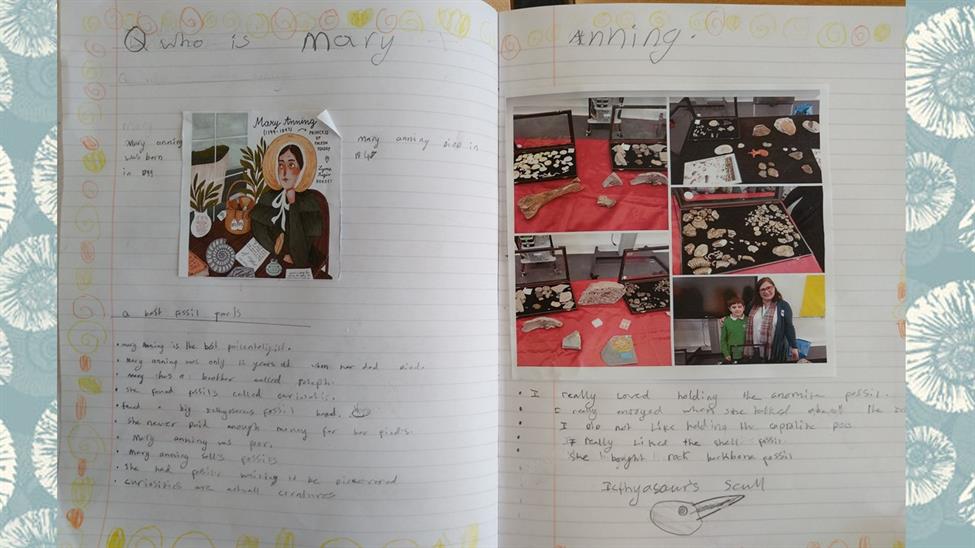 Q who is Mary Anning.
Mary Anning
(1799-1847)
PRINCESS OF PALEONTOLOGY
Lyme Regis
DORSET
Mary anning
was born
in 1799
Mary anning died in
1847
a best fossil
• mary Anning is the best
• mary anning was only 12 years old when her dad died.
• mary has a brother called Joseph.
• She found fossils called
• a big fossil head.
• she never paid enough money for her
• Mary anning was poor.
• Mary anning sells fossils
• She had fossils waiting to be discovered
• curiosities are actuall creatures
• I really loved holding the fossil.
• I really enjoyed when she talked about the
• I did not like holding the poo
• I really Liked the shell fossil
• She bought rock backbone fossil
Icthyasaur's Scull